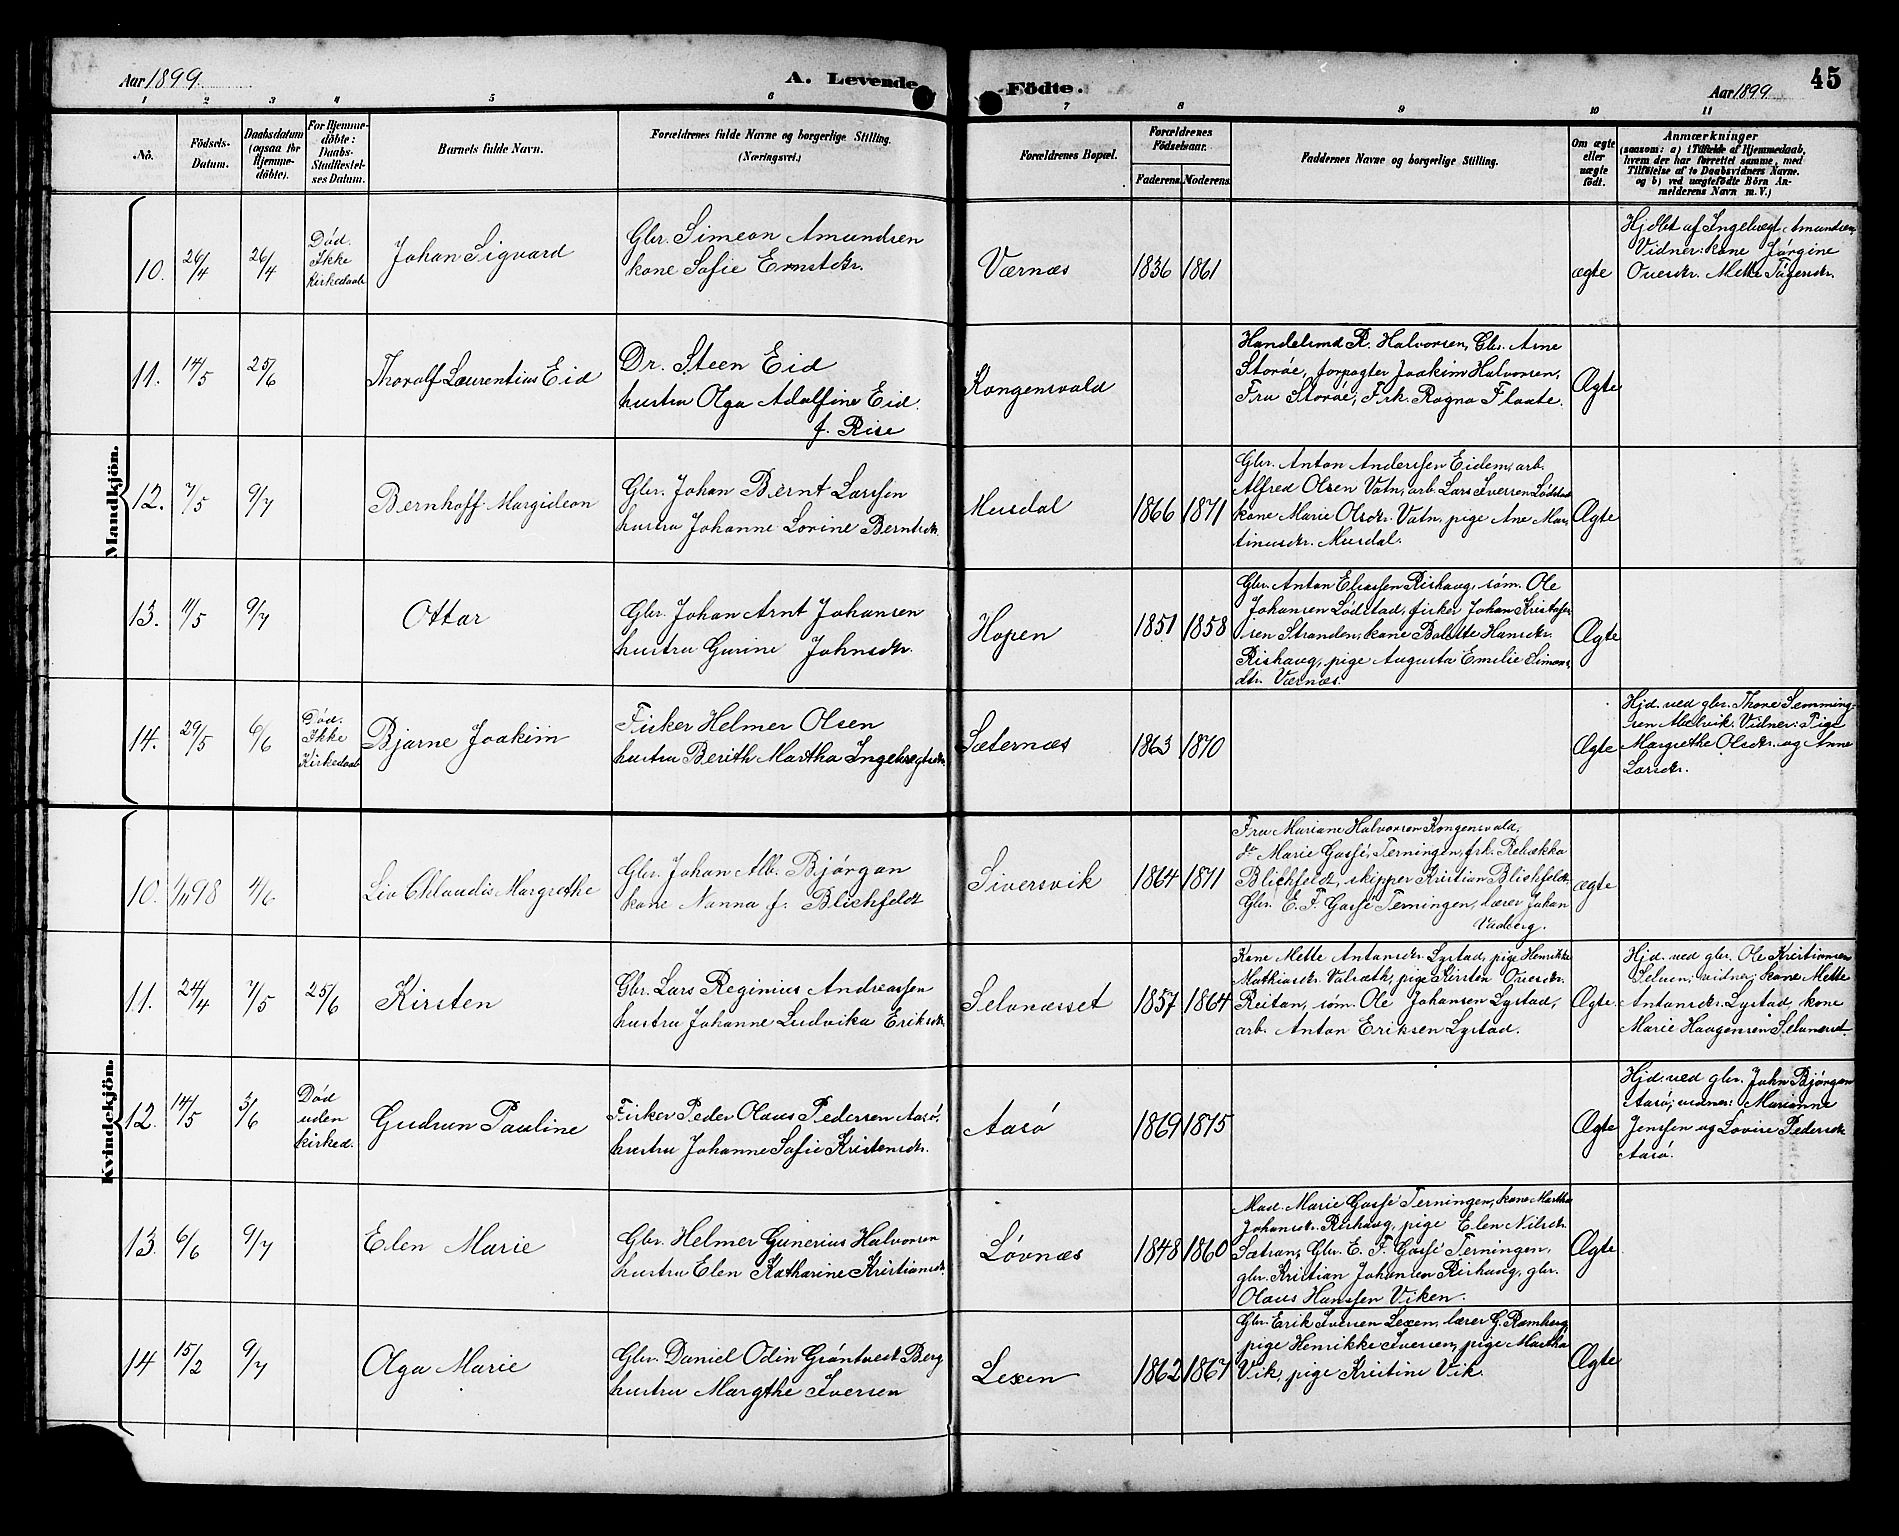 Aar 1899.
A. Levende
Födte.
Aar 1899
45
1 2 3 4 5 6 7 8 9 10 11
No.
Födsels-
Datum.
Daabsdatum
(ogsaa for
Hjemme-
döbte).
For Hjemme-
döbte:
Daabs-
Stadfæstel-
ses Datum.
Barnets fulde Navn.
Forældrenes fulde Navne og borgerlige Stilling.
(Næringsvei.)
Forældrenes Bopæl.
Forældrenes
Födselsaar.
Faderens. Moderens.
Faddernes Navne og borgerlige Stilling.
Om ægte
eller
uægte
födt.
Anmærkninger
(saasom: a) i Tilfælde af Hjemmedaab,
hvem der har forrettet samme, med
Tilföielse af to Daabsvidners Navne.
og b) ved uægtefödte Börn An-
melderens Navn m. V.)
Mandkjön.
10. 26/4 26/4
Død.
Ikke
Kirkedaab
Johan Sigvard
Gbr. Simeon Amundsen
kone Sofie Ernstdtr.
Værnæs
1836 1861
ægte
Hjdbt af Ingebregt Amundsen
Vidner: kone Jørgine
Ovesdr. Mette
11. 14/5 25/6
Thoralf Laurentius Eid
Dr. Steen Eid
hustru Olga Adolfine Eid.
f. Rise
Kongensvold
Handelsmd R. Halvorsen, Gbr. Arne
Storøe, forpagter Joakim Halvorsen,
Fru Storøe, Frk. Ragna Flaate.
Ægte
12. 7/5 9/7
Bernhoff Margideon
Gbr. Johan Bernt Larssen
hustru Johanne Lovine Berntsdtr.
Musdal
1866 1871
Gbr. Anton Anderssen Eidem, arb.
Alfred Olsen Vatn, arb. Lars Iversen Lødstad
kone Marie Olsdtr. Vatn, pige Ane Mar,
tinusdtr. Musdal.
Ægte
13. 11/5 9/7
Ottar
Gbr. Johan Arnt Johansen
hustru Gurine Johnsdtr.
Hopen
1851 1858
Gbr. Anton Eliassen Rishaug, søm. Ole
Johansen Lødstad, fisker Johan Kristofer
sen Stranden, kone Bolette Hansdtr.
Rishaug, pige Augusta Emilie Simons
dtr. Værnæs.
Ægte
14. 29/5 6/6
Død.
Ikke
Kirkedaab
Bjarne Joakim
Fisker Helmer Olsen
hustru Berith Martha Ingebregtsdtr.
Sæternæs
1863 1870
Ægte
Hjd. ved gbr. Thore Semming-
sen Aldevik. Vidner: Pige
Margrethe Olsdtr. og Anne
Larsdtr.
Kvindekjön.
10. 1/11 98 4/6
Liv Chlaudis Margrethe
Gbr. Johan Alb. Bjørgan
kone Nanna f. Blichfeldt
Siversvik
1864 1871
Fru Mariane Halvorsen Kongensvold,
do Marie Gassé, Terningen, frk. Rebekka
Blichfeldt, skipper Kristian Blichfeldt
Gbr. E. F. Gassé Terningen, lærer Johan
ægte
11. 24/4 7/5 25/6
Kirsten
Gbr. Lars Reginius Andreassen
hustru Johanne Ludvika Eriksdtr.
Selvnæsset
1857 1864
Kone Mette Antonsdtr. Lystad, pige Henrikke
Mathiasdtr. Valsæth, pige Kirsten Ovesdtr.
Reitan, søm. Ole Johansen Lystad,
arb. Anton Eriksen Lystad.
Ægte.
Hjd. ved gbr. Ole Kristiansen
Selven, vidner: kone Mette
Antonsdtr. Lystad, kone
Marie Haagensen Selvnæsset.
12. 14/5 3/6
Død
uden
kirked.
Gudrun Pauline
Fisker Peder Olaus Pedersen Aasø.
hustru Johanne Sofie Kristensdtr.
Aasø
1869 1875
Ægte
Hjd. ved gbr. John Bjørgan
Aasø; vidner: Marianne
Jenssen og Lovise Pedersdtr
Aasø.
13. 6/6 9/7
Elen Marie
Gbr. Helmer Gunerius Halvorsen
hustru Elen Katharine Kristiansdtr.
Løvnæs
1848 1860
Mad. Marie Gassé Terningen, kone Martha
Johansdtr. Rishaug, pige Elen Nilsdtr.
Sætran, Gbr. E. F. Gassé Terningen,
gbr. Kristian Johansen Rishaug, gbr.
Olaus Hanssen Viken.
Ægte
14 15/2 9/7
Olga Marie
Gbr. Daniel Odin Grøntvedt Berg
hustru Margthe Iversen
Lexen
1862 1867
Gbr. Erik Iversen Lexen, lærer G. Ramberg,
pige Henrikke Iversen, pige Martha
Vik, pige Kristine Vik.
Ægte